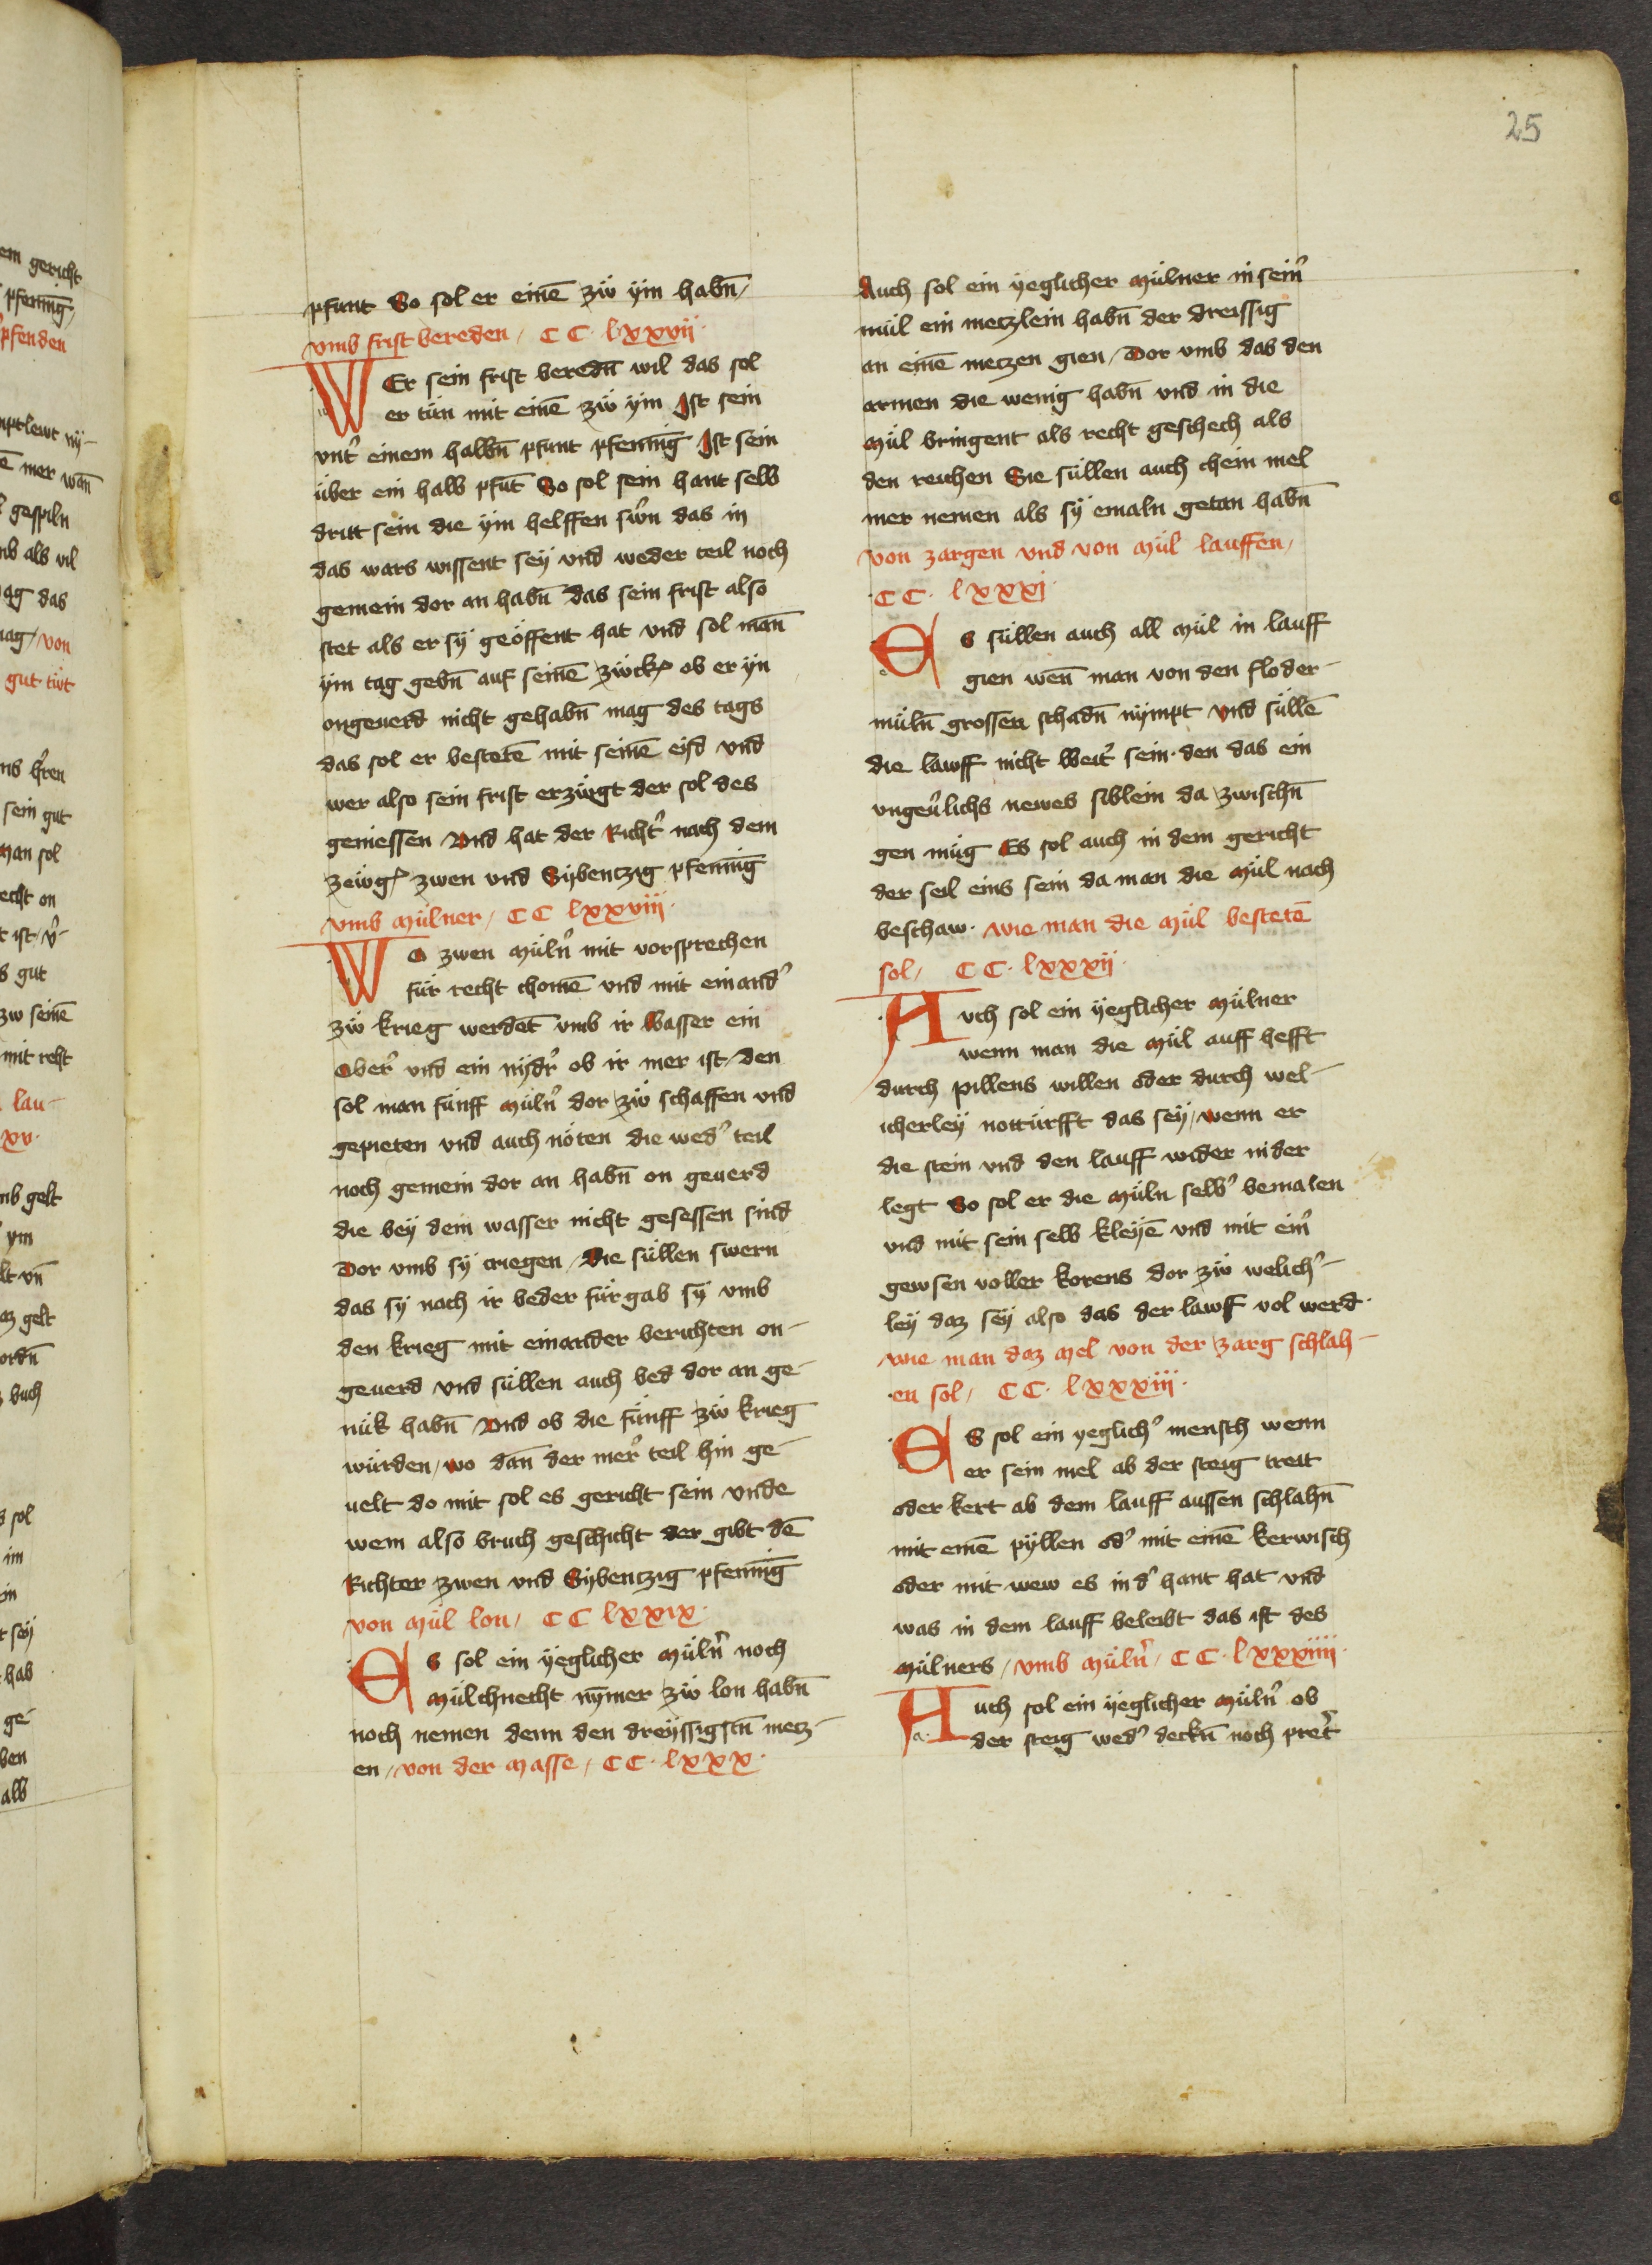 25
pfunt So sol er einē zw ÿm habn̄
vmb frist bereden CC lxxvii
WEr sein frist beredn̄ wil das sol
er tün mit einē zw ÿm Ist sein
vnt̾ einem halbn̄ pfunt pfenning̅ Ist sein
über ein halb pfūt So sol sein hant selb
dritt sein die ÿm helffen sw̾n das in
das wars wissent seÿ vnd weder teil noch
gemein dor an habn̄ das sein frist also
stet als er sÿ geöffent hat vnd sol man̄
ÿm tag gebn̄ auf seinē zwck ob er ÿn
ongeuerd nicht gehabn̄ mag des tags
das sol er bestetē mit seinē eid vnd
wer also sein frist erzwgt der sol des
geniessen Vnd hat der Richt̾ nach dem
zewg zwen vnd Sÿbentzig pfenning̅
vmb Mülner CC lxxviii
WO zwen Müln̾ mit vorsprechen
für recht chomē vnd mit einand̾
zw krieg werdēt vmb ir Wasser ein
Ober̾ vnd ein nÿdr̾ ob ir mer ist den
sol man fünff Müln̾ dor zw schaffen vnd
gepieten vnd auch nöten die wed̾ teil
noch gemein dor an habn̄ on geuerd
die beÿ dem wasser nicht gesessen sind
Dor vmb sÿ criegen Die süllen swern
das sÿ nach ir beder fürgab sÿ vmb
den krieg mit einander berichten on-
geuerd vnd süllen auch bed dor an ge-
nük habn̄ Vnd ob die fünff zw krieg
würden wo dan̄ der mer̾ teil hin ge-
uelt do mit sol es gericht sein vnde
wem also bruch geschicht der gibt dē
Richter zwen vnd Sÿbentzig pfenning̅
von Mül lon CC lxxix
ES sol ein ÿeglicher Müln̾ noch
Mülchnecht nȳmer zw lon habn̄
noch nemen denn den dreÿssigstn̄ metz-
en von der Masse CC lxxx
Auch sol ein ÿeglicher Mülner in sein̾
mül ein metzlein habn̄ der dreissig
an einē metzen gien Dor vmb das den
armen die wenig habn̄ vnd in die
Mül bringent als recht geschech als
den reichen Sie süllen auch chein mel
mer nemen als sÿ emaln getan habn̄
von zargen vnd von Mül lauffen
CC lxxxi
ES süllen auch all Mül in lauff
gien wen̄ man von den floder-
müln̄ grossen schadn̄ nÿmpt vnd süllē
die lawff nicht Weit̾ sein den das ein
vngeu̾lichs newes siblein da zwischn̄
gen müg Es sol auch in dem gericht
der seil eins sein da man die Mül nach
beschaw wie man die Mül bestetē
sol CC lxxxii
AVch sol ein ÿeglicher Mülner
wenn man die Mül auff hefft
durch pillens willen oder durch wel-
icherleÿ notturfft das seÿ wenn er
die stein vnd den lauff wider nider
legt So sol er die Müln selb̾ bemalen
vnd mit sein selb kleÿē vnd mit ein̾
gewsen voller korens dor zw welich̾-
leÿ daz seÿ also das der lawff vol werd
wie man daz Mel von der zarg schlah-
en sol CC lxxxiii
ES sol ein yeglich̾ mensch wenn
er sein mel ab der steig treit
oder kert ab dem lauff aussen schlahn̄
mit einē pÿllen od̾ mit einē kerwisch
oder mit wew es in d̾ hant hat vnd
was in dem lauff beleibt das ist des
Mülners vmb Müln̾ CC lxxxiiii
AUch sol ein ÿeglicher Müln̾ ob
der steig wed̾ deckn̄ noch pret̾